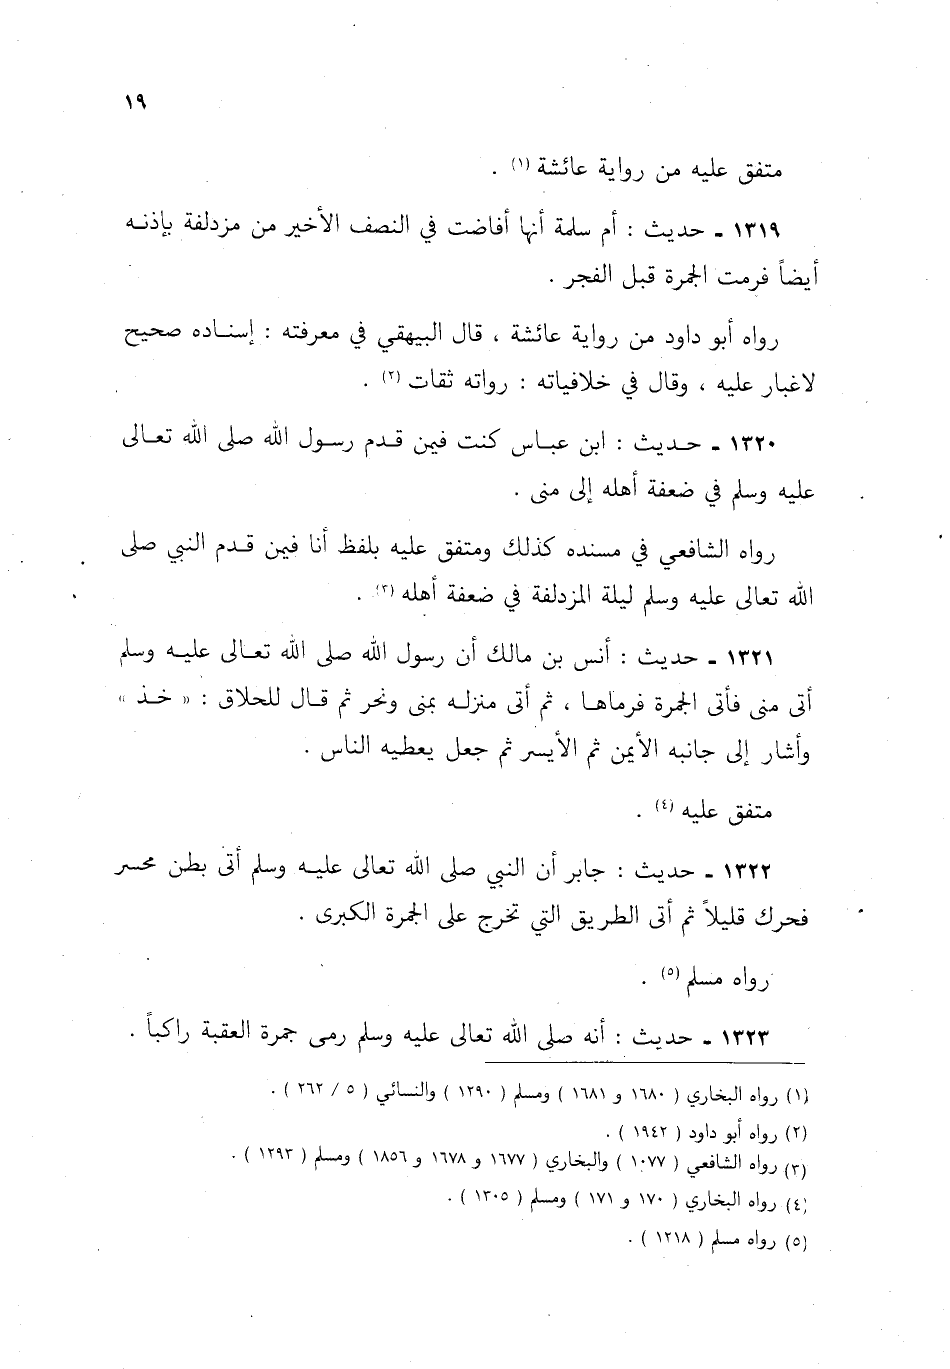 ١٩
متفق عليه من رواية عائشة (١) .
١٣١٩ - حديث : أم سلمة أنها أفاضت في النصف الأخير من مزدلفة بإذنه
أيضاً فرمت الجمرة قبل الفجر .
رواه أبو داود من رواية عائشة ، قال البيهقي في معرفته : إسناده صحيح
لاغبار عليه ، وقال في خلافياته : رواته ثقات (٢) .
١٣٢٠ - حديث : ابن عباس كنت فيمن قدم رسول الله صلى الله تعالى
عليه وسلم في ضعفة أهله إلى منى .
رواه الشافعي في مسنده كذلك ومتفق عليه بلفظ أنا فيمن قدم النبي صلى
الله تعالى عليه وسلم ليلة المزدلفة في ضعفة أهله (٣) .
١٣٢١ - حديث : أنس بن مالك أن رسول الله صلى الله تعالى عليه وسلم
أتى منى فأتى الجمرة فرماها ، ثم أتى منزله بمنى ونحر ثم قال للحلاق : « خذ »
وأشار إلى جانبه الأيمن ثم الأيسر ثم جعل يعطيه الناس .
متفق عليه (٤) .
١٣٢٢ - حديث : جابر أن النبي صلى الله تعالى عليه وسلم أتى بطن محسر
فحرك قليلاً ثم أتى الطريق التي تخرج على الجمرة الكبرى .
رواه مسلم (٥) .
١٣٢٣ - حديث : أنه صلى الله تعالى عليه وسلم رمى جمرة العقبة راكباً .
(١) رواه البخاري ( ١٦٨٠ و ١٦٨١ ) ومسلم ( ١٢٩٠ ) والنسائي ( ٥ / ٢٦٢ ) .
(٢) رواه أبو داود ( ١٩٤٢ ) .
(٣) رواه الشافعي ( ١٠٧٧ ) والبخاري ( ١٦٧٧ و ١٦٧٨ و ١٨٥٦ ) ومسلم ( ١٢٩٣ ) .
(٤) رواه البخاري ( ١٧٠ و ١٧١ ) ومسلم ( ١٣٠٥ ) .
(٥) رواه مسلم ( ١٢١٨ ) .